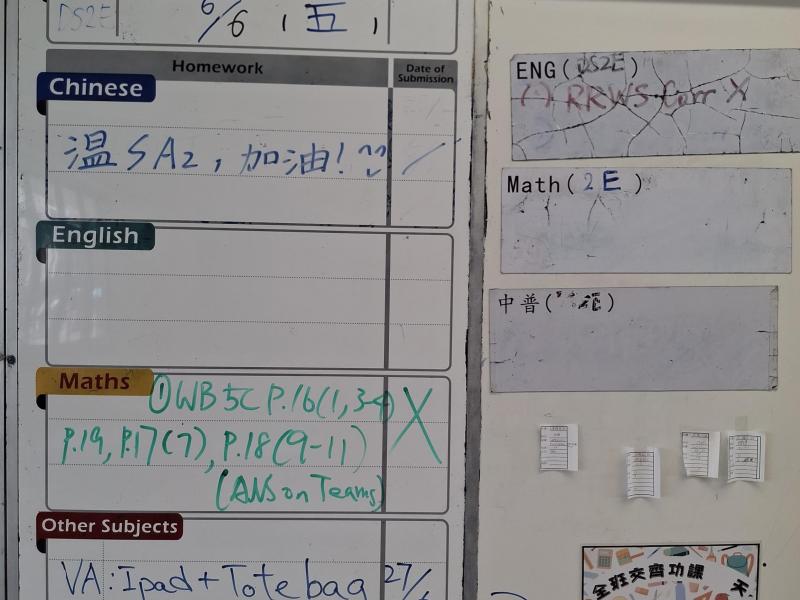 DS2E
6/6 (五)
Homework
Date of Submission
Chinese
温 SA2, 加油!
English
Maths
① WB 5C P.16(1,3-4) X
P.19, P.17(7), P.18(9-11)
(ANS on Teams)
Other Subjects
VA: Ipad + Tote bag 27/
ENG(DS2E)
(1) RRWS Corr X
Math(2E)
中普(
全班交齊功課 天